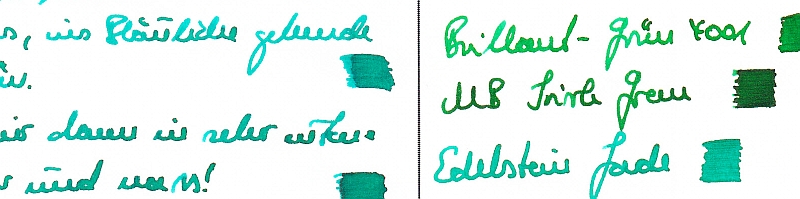 s, ins Bläuliche gehende
ün.
dann in sehr
r und nass!
Brillant-Grün 4001
MB Irish Green
Edelstein Jade